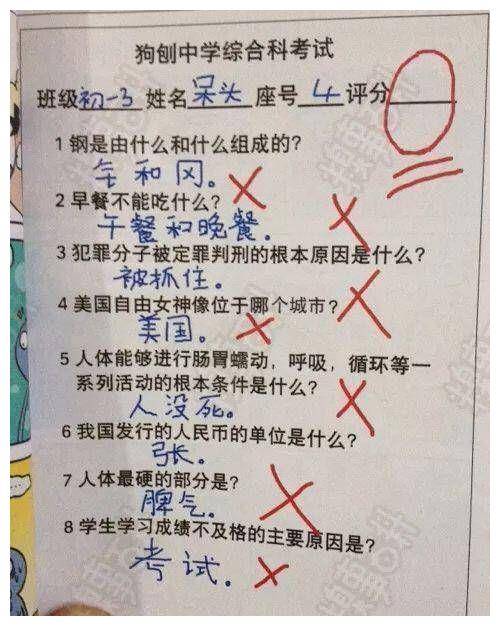 狗刨中学综合科考试
班级初一3 姓名呆头 座号4 评分0
1 钢是由什么和什么组成的?
钅和冈。
2 早餐不能吃什么?
午餐和晚餐.
3 犯罪分子被定罪判刑的根本原因是什么?
被抓住.
4 美国自由女神像位于哪个城市?
美国。
5 人体能够进行肠胃蠕动，呼吸，循环等一
系列活动的根本条件是什么?
人没死。
6 我国发行的人民币的单位是什么?
张。
7 人体最硬的部分是?
脾气。
8 学生学习成绩不及格的主要原因是?
考试.